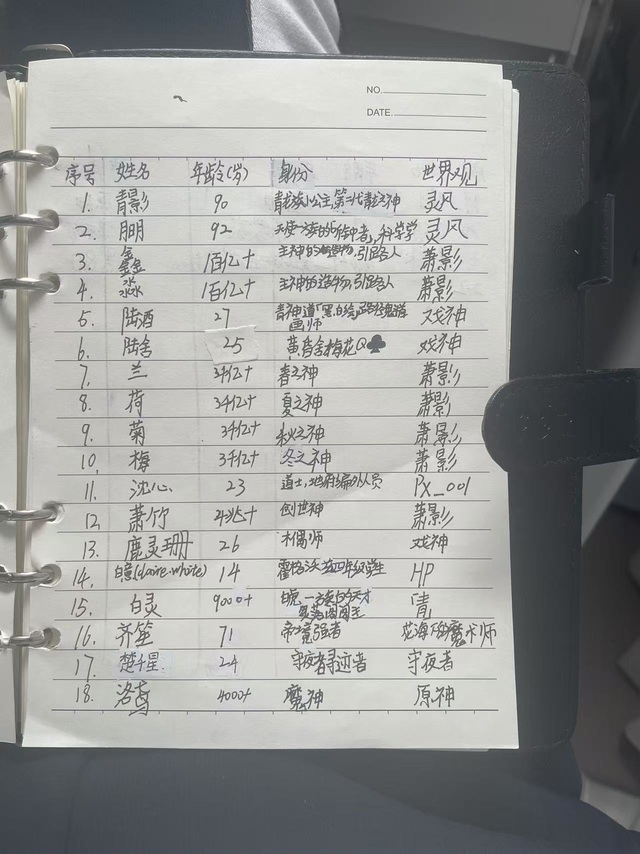 NO.
DATE.
序号 姓名 年龄(岁) 身份 世界观
1. 青影 90 青龙族小公主,第二代青之神 灵风
2. 明 92 天使一族的 者,科学学 灵风
3. 鑫 1百亿+ 主神的造物,引路人 萧影
4. 淼 1百亿+ 主神的造物,引路人 萧影
5. 陆酒 27 青神道「黑白绘」路径 画师 戏神
6. 陆舍 25 黄昏舍梅花Q♣ 戏神
7. 兰 3千亿+ 春之神 萧影
8. 荷 3千亿+ 夏之神 萧影
9. 菊 3千亿+ 秋之神 萧影
10. 梅 3千亿+ 冬之神 萧影
11. 沈心 23 道士,地府编外人员 PX_001
12. 萧竹 4兆+ 创世神 萧影
13. 鹿灵珊 26 木偶师 戏神
14. 白意(claire.white) 14 霍格沃茨四年级学生 HP
15. 白灵 9000+ 一族的天才
16. 齐笙 71 帝境强者 花海下的魔术师
17. 楚千星 24 守夜者寻迹者 守夜者
18. 洛鸢 4000+ 魔神 原神